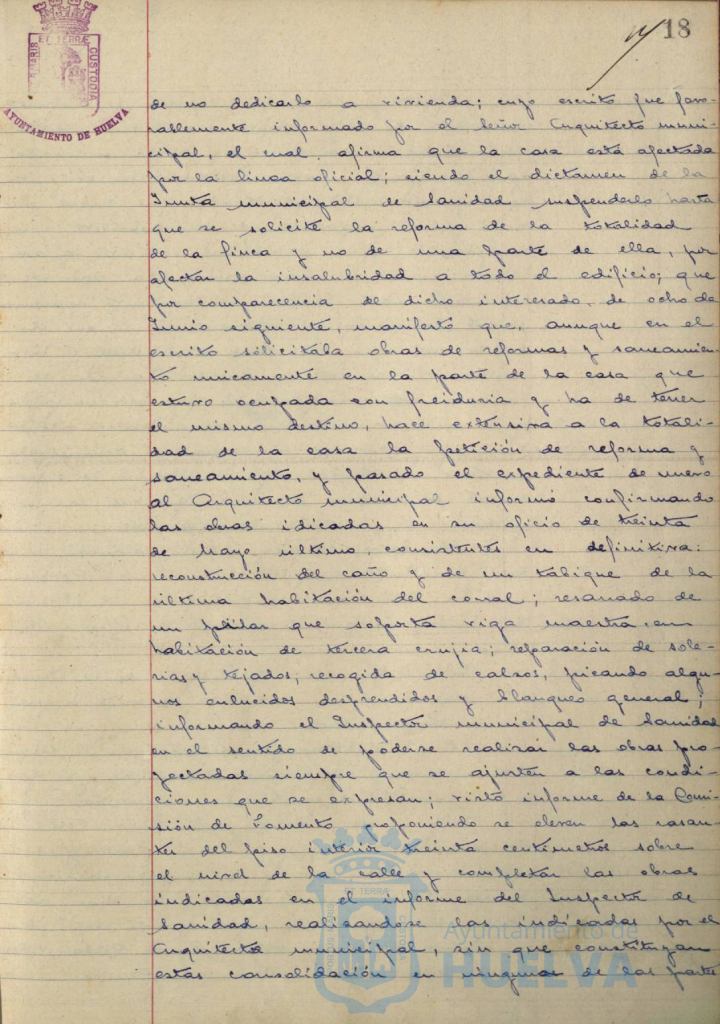 18
PORTUS MARIS ET TERRÆ CUSTODIA
AYUNTAMIENTO DE HUELVA
de no dedicarlo a vivienda; cuyo escrito fue favo-
rablemente informado por el Señor Arquitecto muni-
cipal, el cual afirma que la casa está afectada
por la linea oficial; siendo el dictamen de la
Junta municipal de Sanidad suspenderlo hasta
que se solicite la reforma de la totalidad
de la finca y no de una parte de ella, por
afectar la insalubridad a todo el edificio; que
por comparecencia de dicho interesado, de ocho de
Junio siguiente, manifestó que, aunque en el
escrito solicitaba obras de reformas y saneamien-
to unicamente en la parte de la casa que
estuvo ocupada con freiduria y ha de tener
el mismo destino, hace extensiva a la totali-
dad de la casa la petición de reforma y
saneamiento, y pasado el expediente de nuevo
al Arquitecto municipal informó confirmando
las obras idicadas en su oficio de treinta
de Mayo último, consistentes en definitiva:
reconstrucción del caño y de un tabique de la
última habitación del corral; resanado de
un pilar que soporta viga maestra en
habitación de tercera crujia; reparación de sole-
rias y tejados; recogida de calzos, picando algu-
nos enlucidos desprendidos y blanqueo general;
informando el Inspector municipal de Sanidad
en el sentido de poderse realizar las obras pro-
yectadas siempre que se ajusten a las condi-
ciones que se expresan; visto informe de la Comi-
sión de Fomento proponiendo se eleven las rasan-
tes del piso interior treinta centimetros sobre
el nivel de la calle y completar las obras
indicadas en el informe del Inspector de
Sanidad, realizandose las indicadas por el
Arquitecto municipal, sin que constituyan
estas consolidación en ninguna de las partes
Ayuntamiento de
HUELVA